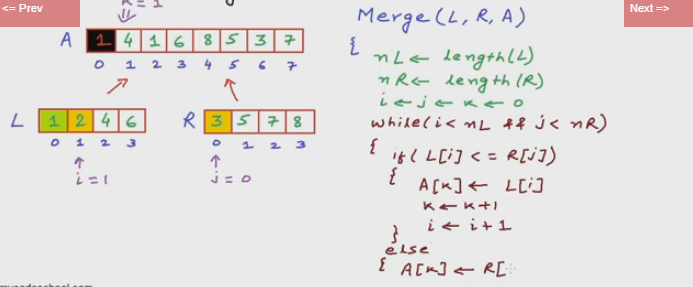 <= Prev
Next =>
K = 1
A 1 4 1 6 8 5 3 7
0 1 2 3 4 5 6 7
L 1 2 4 6
0 1 2 3
i = 1
R 3 5 7 8
0 1 2 3
j = 0
Merge(L, R, A)
{
nL ← length(L)
nR ← length(R)
i ← j ← k ← 0
while(i < nL && j < nR)
{ if( L[i] <= R[j])
{ A[k] ← L[i]
k ← k+1
i ← i+1
}
else
{ A[k] ← R[